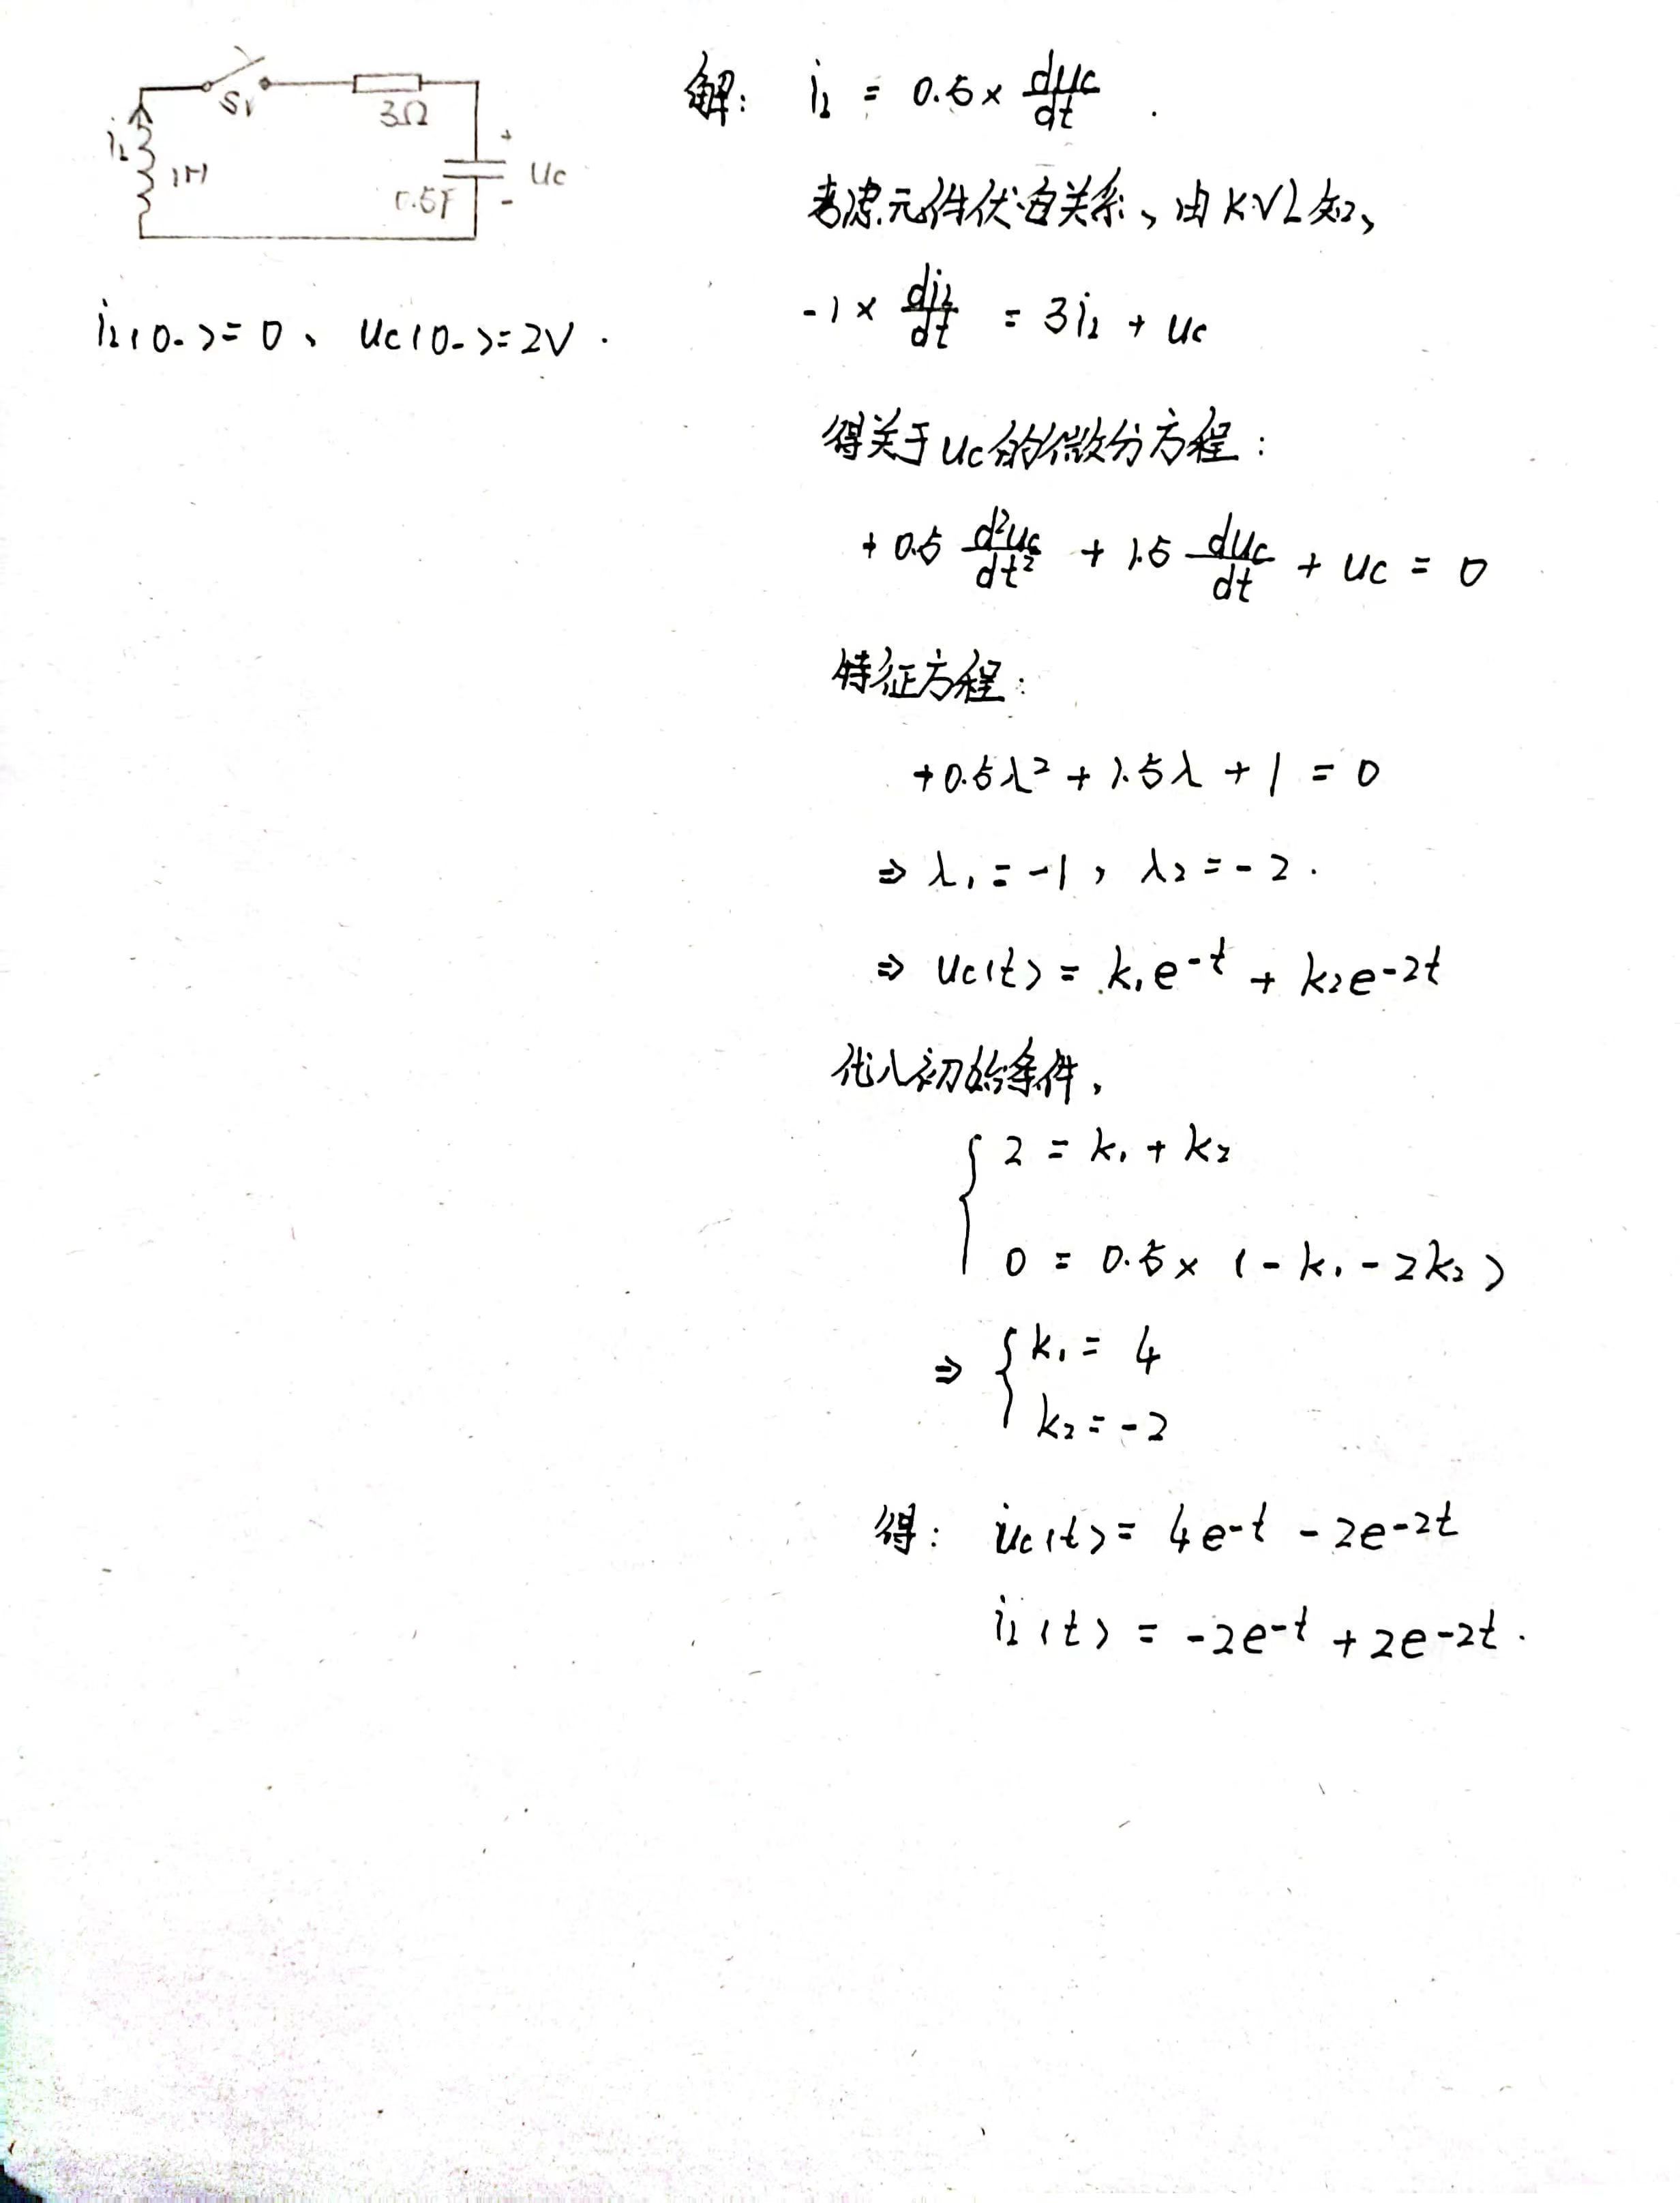 S1
3Ω
iL
1H
0.5F
+
uc
-
iL(0-)=0、uc(0-)=2V.
解: iL = 0.5× duc/dt .
考虑元件伏安关系、由KVL知、
-1× diL/dt = 3iL + uc
得关于uc的微分方程:
+0.5 d²uc/dt² + 1.5 duc/dt + uc = 0
特征方程:
+0.5λ² + 1.5λ + 1 = 0
⇒ λ1 = -1, λ2 = -2.
⇒ uc(t) = k1e^-t + k2e^-2t
代入初始条件,
{ 2 = k1 + k2
0 = 0.5× (-k1-2k2)
⇒ { k1 = 4
k2 = -2
得: uc(t) = 4e^-t - 2e^-2t
iL(t) = -2e^-t + 2e^-2t.